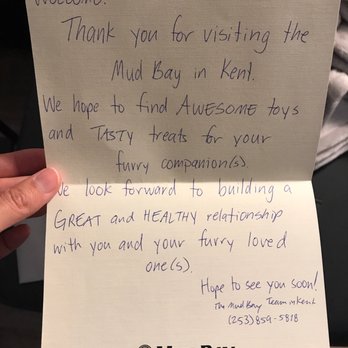 Welcome!
Thank you for visiting the
Mud Bay in Kent.
We hope to find AWESOME toys
and TASTY treats for your
furry companion(s).
We look forward to building a
GREAT and HEALTHY relationship
with you and your furry loved
one(s).
Hope to see you soon!
The Mud Bay Team in Kent
(253) 859-5818